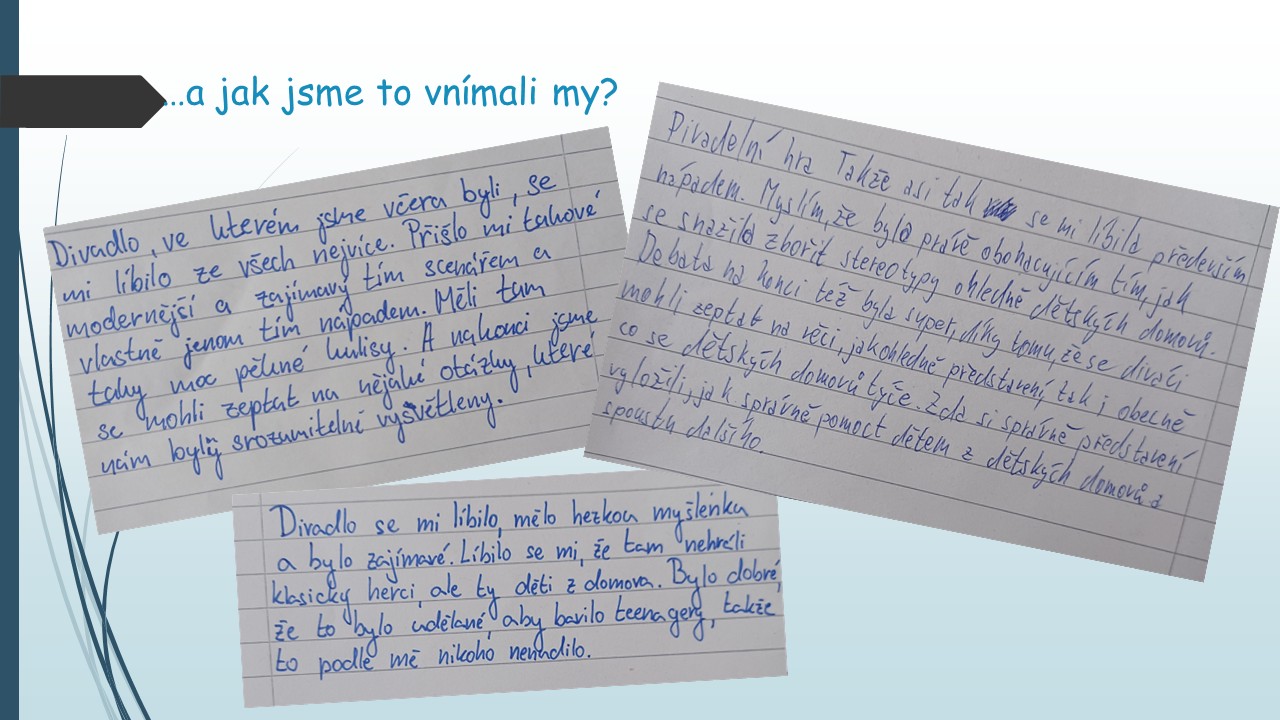 ...a jak jsme to vnímali my?
Divadlo, ve kterém jsme včera byli, se
mi líbilo ze všech nejvíce. Přišlo mi takové
modernější a zajímavý tím scenářem a
vlastně jenom tím nápadem. Měli tam
taky moc pěkné kulisy. A nakonci jsme
se mohli zeptat na nějaké otázky, které
nám byly srozumitelně vysvětleny.
Divadelní hra Takže asi tak se mi líbila především
nápadem. Myslím, že byla právě obohacujícím tím, jak
se snažila zbořit stereotypy ohledně dětských domovů.
Debata na konci též byla super, díky tomu, že se diváci
mohli zeptat na věci, jak ohledně představení, tak i obecně
co se dětských domovů týče. Zda si správně představení
vyložili, jak správně pomoct dětem z dětských domovů a
spoustu dalšího.
Divadlo se mi líbilo, mělo hezkou myšlenku
a bylo zajímavé. Líbilo se mi, že tam nehráli
klasický herci, ale ty děti z domova. Bylo dobré,
že to bylo udělané, aby bavilo teenagery, takže
to podle mě nikoho nenudilo.